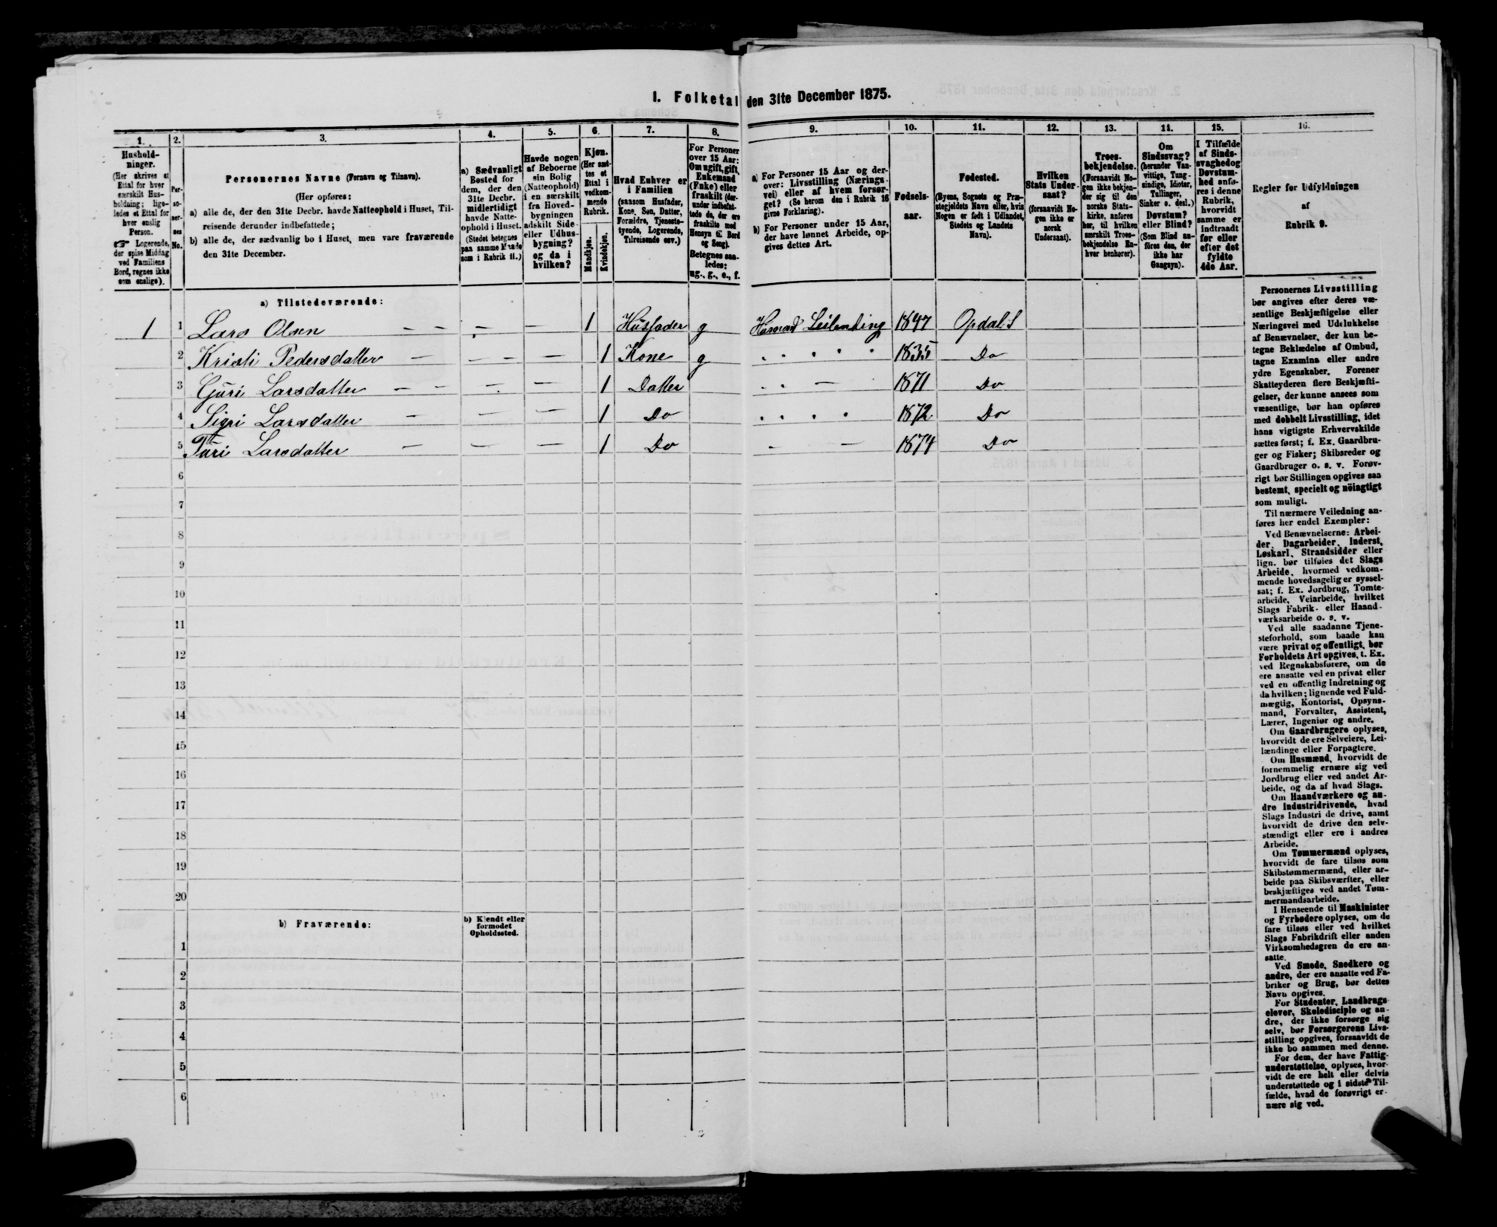 I. Folketal den 31te December 1875.
1.
Hushold-
ninger.
(Her skrives et
Ettal for hver
særskilt Hus-
holdning; lige-
ledes et Ettal for
hver enslig
Person.
☞ Logerende,
der spise Middag
ved Familiens
Bord, regnes ikke
som enslige).
2.
Per-
so-
ner-
nes
No.
3.
Personernes Navne (Fornavn og Tilnavn).
(Her opføres:
a) alle de, der den 31te Decbr. havde Natteophold i Huset, Til-
reisende derunder indbefattede;
b) alle de, der sædvanlig bo i Huset, men vare fraværende
den 31te December.
4.
a) Sædvanligt
Bosted for
dem, der den
31te Decbr.
midlertidigt
havde Natte-
ophold i Huset.
(Stedet betegnes
paa samme Maade
som i Rubrik 11.)
5.
Havde nogen
af Beboerne
sin Bolig
(Natteophold)
i en særskilt
fra Hoved-
bygningen
adskilt Side-
eller Udhus-
bygning?
og da i
hvilken?
6.
Kjøn.
(Her sæt-
tes et
Ettal i
vedkom-
mende
Rubrik.
Mandkjøn.
Kvindekjøn.
7.
Hvad Enhver er
i Familien
(saasom Husfader,
Kone, Søn, Datter,
Forældre, Tjeneste-
tyende, Logerende,
Tilreisende osv.)
8.
For Personer
over 15 Aar:
Om ugift, gift,
Enkemand
(Enke) eller
fraskilt (der-
under indbefat-
tede de, der ere
fraskilte med
Hensyn til Bord
og Seng).
Betegnes saa-
ledes:
ug., g., e., f.
9.
a) For Personer 15 Aar og der-
over: Livsstilling (Nærings-
vei) eller af hvem forsør-
get? (Se herom den i Rubrik 16
givne Forklaring).
b) For Personer under 15 Aar,
der have lønnet Arbeide, op-
gives dettes Art.
10.
Fødsels-
aar.
11.
Fødested.
(Byens, Sognets og Præ-
stegjeldets Navn eller, hvis
Nogen er født i Udlandet,
Stedets og Landets
Navn).
12.
Hvilken
Stats Under-
saat?
(forsaavidt No-
gen ikke er
norsk
Undersaat).
13.
Troes-
bekjendelse.
(Forsaavidt No-
gen ikke bekjen-
der sig til den
norske Stats-
kirke, anføres
her, til hvilken
særskilt Troes-
bekjendelse En-
hver henhører).
14.
Om
Sindssvag?
(herunder Van-
vittige, Tung-
sindige, Idioter,
Tullinger,
Sinker o. desl.)
Døvstum?
eller Blind?
(Som Blind an-
føres den, der
ikke har
Gangsyn).
15.
I Tilfælde
af Sinds-
svaghed og
Døvstum-
hed anfø-
res i denne
Rubrik,
hvorvidt
samme er
indtraadt
før eller
efter det
fyldte
4de Aar.
16.
Regler for Udfyldningen
af
Rubrik 9.
a) Tilstedeværende:
1 1 Lars Olsen 1 Husfader g Husmand Leilending 1847 Opdal S
2 Kristi Pedersdatter 1 Kone g 1835 Do
3 Guri Larsdatter 1 Datter 1871 Do
4 Sigri Larsdatter 1 Do 1872 Do
5 Turi Larsdatter 1 Do 1874 Do
6
7
8
9
10
11
12
13
14
15
16
17
18
19
20
b) Fraværende:
b) Kjendt eller
formodet
Opholdssted.
1
2
3
4
5
6
Personernes Livsstilling
bør angives efter deres væ-
sentlige Beskjæftigelse eller
Næringsvei med Udelukkelse
af Benævnelser, der kun be-
tegne Beklædelse af Ombud,
tagne Examina eller andre
ydre Egenskaber. Forener
Skatteyderen flere Beskjæfti-
gelser, der kunne ansees som
væsentlige, bør han opføres
med dobbelt Livsstilling, idet
hans vigtigste Erhvervskilde
sættes først; f. Ex. Gaardbru-
ger og Fisker; Skibsreder og
Gaardbruger o. s. v. Forøv-
rigt bør Stillingen opgives saa
bestemt, specielt og nöiagtigt
som muligt.
Til nærmere Veiledning an-
føres her endel Exempler:
Ved Benævnelserne: Arbei-
der, Dagarbeider, Inderst,
Løskarl, Strandsidder eller
lign. bør tilføies det Slags
Arbeide, hvormed vedkom-
mende hovedsagelig er syssel-
sat; f. Ex. Jordbrug, Tomte-
arbeide, Veiarbeide, hvilket
Slags Fabrik- eller Haand-
værksarbeide o. s. v.
Ved alle saadanne Tjene-
steforhold, som baade kan
være privat og offentligt, bør
Forholdets Art opgives, t. Ex.
ved Regnskabsførere, om de
ere ansatte ved en privat eller
ved en offentlig Indretning og
da hvilken; lignende ved Fuld-
mægtig, Kontorist, Opsyns-
mand, Forvalter, Assistent,
Lærer, Ingeniør og andre.
Om Gaardbrugere oplyses,
hvorvidt de ere Selveiere, Lei-
lændinge eller Forpagtere.
Om Husmænd, hvorvidt de
fornemmelig ernære sig ved
Jordbrug eller ved andet Ar-
beide, og da af hvad Slags.
Om Haandværkere og an-
dre Industridrivende, hvad
Slags Industri de drive, samt
hvorvidt de drive den selv-
stændigt eller ere i andres
Arbeide.
Om Tømmermænd oplyses,
hvorvidt de fare tilsøs som
Skibstømmermænd, eller ar-
beide paa Skibsværfter, eller
beskjæftiges ved andet Tøm-
mermandsarbeide.
I Henseende til Maskinister
og Fyrbødere oplyses, om de
fare tilsøs eller ved hvilket
Slags Fabrikdrift eller anden
Virksomhedsgren de ere an-
satte.
Ved Smede, Snedkere og
andre, der ere ansatte ved Fa-
briker og Brug, bør dettes
Navn opgives.
For Studenter, Landbrugs-
elever, Skoledisciple og an-
dre, der ikke forsørge sig
selv, bør Forsørgerens Livs-
stilling opgives, forsaavidt de
ikke bo sammen med denne.
For dem, der have Fattig-
understøttelse, oplyses, hvor-
vidt de ere helt eller delvis
understøttede og i sidste Til-
fælde, hvad de forøvrigt er-
nære sig ved.